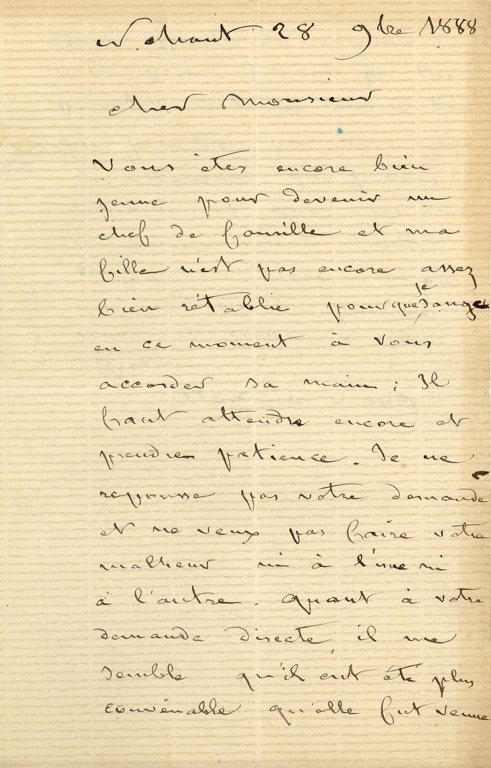 28 9bre 1888
Cher Monsieur
Vous êtes encore bien
jeune pour devenir un
chef de famille et ma
fille n'est pas encore assez
bien rétablie pour que je songe
en ce moment à vous
accorder sa main ; Il
faut attendre encore et
prendre patience. Je ne
repousse pas votre demande
et ne veux pas faire votre
malheur ni à l'une ni
à l'autre. Quant à votre
demande directe, il me
semble qu'il eut été plus
convenable qu'elle fut venue